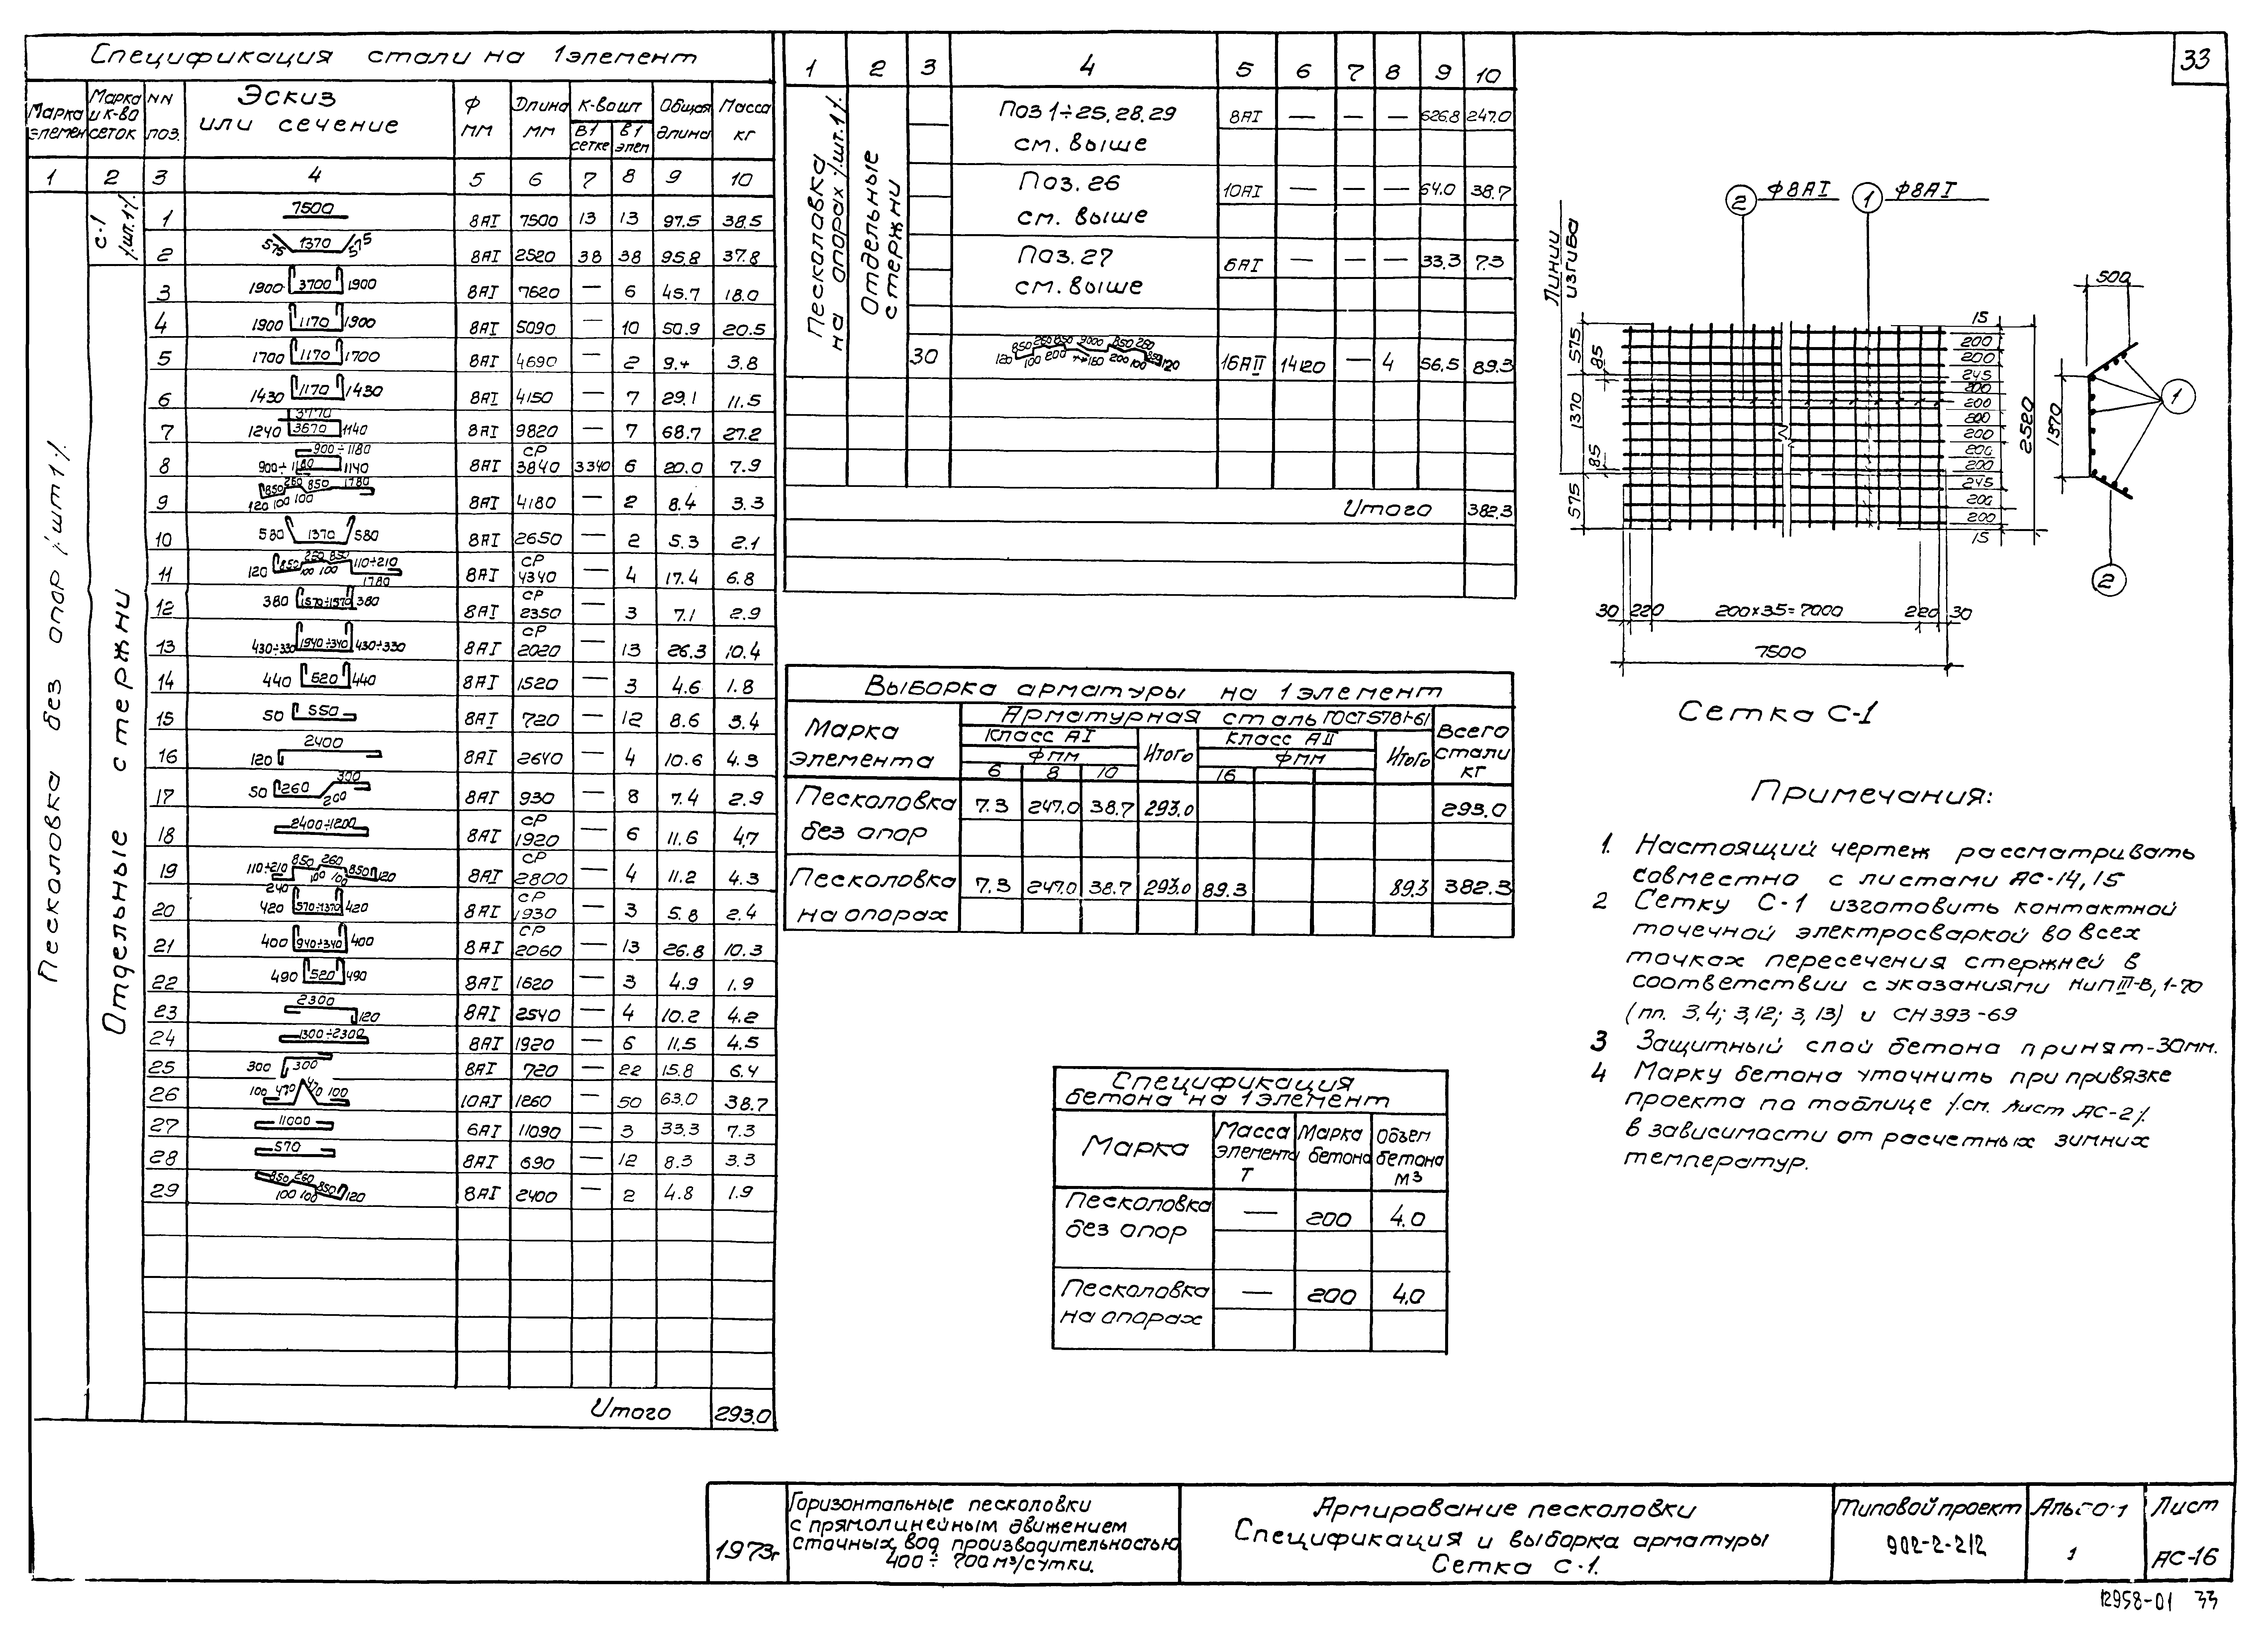 33
Спецификация стали на 1 элемент
Марка элемен | Марка и к-во сеток | NN поз. | Эскиз или сечение | Ф мм | Длина мм | К-во шт в 1 сетке | в 1 элем | Общая длина | Масса кг
1 2 3 4 5 6 7 8 9 10
Песколовка без опор /шт 1/.
С-1 /шт. 1/.
Отдельные стержни
1 | 7500 | 8АI | 7500 | 13 | 13 | 97.5 | 38.5
2 | 575 1370 575 | 8АI | 2520 | 38 | 38 | 95.8 | 37.8
3 | 1900 3700 1900 | 8АI | 7620 | — | 6 | 45.7 | 18.0
4 | 1900 1170 1900 | 8АI | 5090 | — | 10 | 50.9 | 20.5
5 | 1700 1170 1700 | 8АI | 4690 | — | 2 | 9.4 | 3.8
6 | 1430 1170 1430 | 8АI | 4150 | — | 7 | 29.1 | 11.5
7 | 1240 3770 3670 1140 | 8АI | 9820 | — | 7 | 68.7 | 27.2
8 | 900÷1180 900÷1180 1140 | 8АI | ср 3840 | 3340 | 6 | 20.0 | 7.9
9 | 120 850 100 260 100 850 1780 | 8АI | 4180 | — | 2 | 8.4 | 3.3
10 | 580 1370 580 | 8АI | 2650 | — | 2 | 5.3 | 2.1
11 | 120 850 260 850 100 100 110÷210 1780 | 8АI | ср 4340 | — | 4 | 17.4 | 6.8
12 | 380 1570÷1570 380 | 8АI | ср 2350 | — | 3 | 7.1 | 2.9
13 | 430÷330 1940÷340 430÷330 | 8АI | ср 2020 | — | 13 | 26.3 | 10.4
14 | 440 520 440 | 8АI | 1520 | — | 3 | 4.6 | 1.8
15 | 50 550 | 8АI | 720 | — | 12 | 8.6 | 3.4
16 | 120 2400 | 8АI | 2640 | — | 4 | 10.6 | 4.3
17 | 50 260 200 300 | 8АI | 930 | — | 8 | 7.4 | 2.9
18 | 2400÷1200 | 8АI | ср 1920 | — | 6 | 11.6 | 4.7
19 | 110÷210 850 260 100 100 850 120 | 8АI | ср 2800 | — | 4 | 11.2 | 4.3
20 | 240 420 570÷1370 420 | 8АI | ср 1930 | — | 3 | 5.8 | 2.4
21 | 400 940÷340 400 | 8АI | ср 2060 | — | 13 | 26.8 | 10.3
22 | 490 520 490 | 8АI | 1620 | — | 3 | 4.9 | 1.9
23 | 2300 120 | 8АI | 2540 | — | 4 | 10.2 | 4.2
24 | 1300÷2300 | 8АI | 1920 | — | 6 | 11.5 | 4.5
25 | 300 300 | 8АI | 720 | — | 22 | 15.8 | 6.4
26 | 100 470 470 100 | 10АI | 1260 | — | 50 | 63.0 | 38.7
27 | 11000 | 6АI | 11090 | — | 3 | 33.3 | 7.3
28 | 570 | 8АI | 690 | — | 12 | 8.3 | 3.3
29 | 850 260 850 100 100 120 | 8АI | 2400 | — | 2 | 4.8 | 1.9
Итого 293.0
1 2 3 4 5 6 7 8 9 10
Песколовка на опорах /шт. 1/.
Отдельные стержни
Поз 1÷25, 28, 29 см. выше | 8АI | — | — | — | 626.8 | 247.0
Поз. 26 см. выше | 10АI | — | — | — | 64.0 | 38.7
Поз. 27 см. выше | 6АI | — | — | — | 33.3 | 7.3
30 | 16АII | 14120 | — | 4 | 56,5 | 89.3
Итого 382.3
Выборка арматуры на 1 элемент
Марка элемента | Арматурная сталь ГОСТ 5781-61 | Всего стали кг
Класс АI | Итого | Класс АII | Итого
Ф мм | Ф мм
6 8 10 16
Песколовка без опор | 7.3 | 247.0 | 38.7 | 293.0 | 293.0
Песколовка на опорах | 7.3 | 247.0 | 38.7 | 293.0 | 89.3 | 89.3 | 382.3
Спецификация
бетона на 1 элемент
Марка | Масса элемента Т | Марка бетона | Объем бетона м³
Песколовка без опор | — | 200 | 4.0
Песколовка на опорах | — | 200 | 4.0
2 Ф8АI 1 Ф8АI
Линии изгиба
575 85 1370 85 575
15 200 200 245 200 200 200 200 200 200 245 200 200 15
2520
30 220 200×35=7000 220 30
7500
500
1370
1
2
Сетка С-1
Примечания:
1. Настоящий чертеж рассматривать
совместно с листами АС-14, 15
2 Сетку С-1 изготовить контактной
точечной электросваркой во всех
точках пересечения стержней в
соответствии с указаниями НиП III-В, 1-70
(пп. 3,4; 3,12; 3,13) и СН 393-69
3 Защитный слой бетона принят-30мм.
4 Марку бетона уточнить при привязке
проекта по таблице /.см. лист АС-2/.
в зависимости от расчетных зимних
температур.
1973г
Горизонтальные песколовки
с прямолинейным движением
сточных вод производительностью
400÷700 м³/сутки.
Армирование песколовки
Спецификация и выборка арматуры
Сетка С-1.
Типовой проект
902-2-212
1
Лист
АС-16
12958-01 33